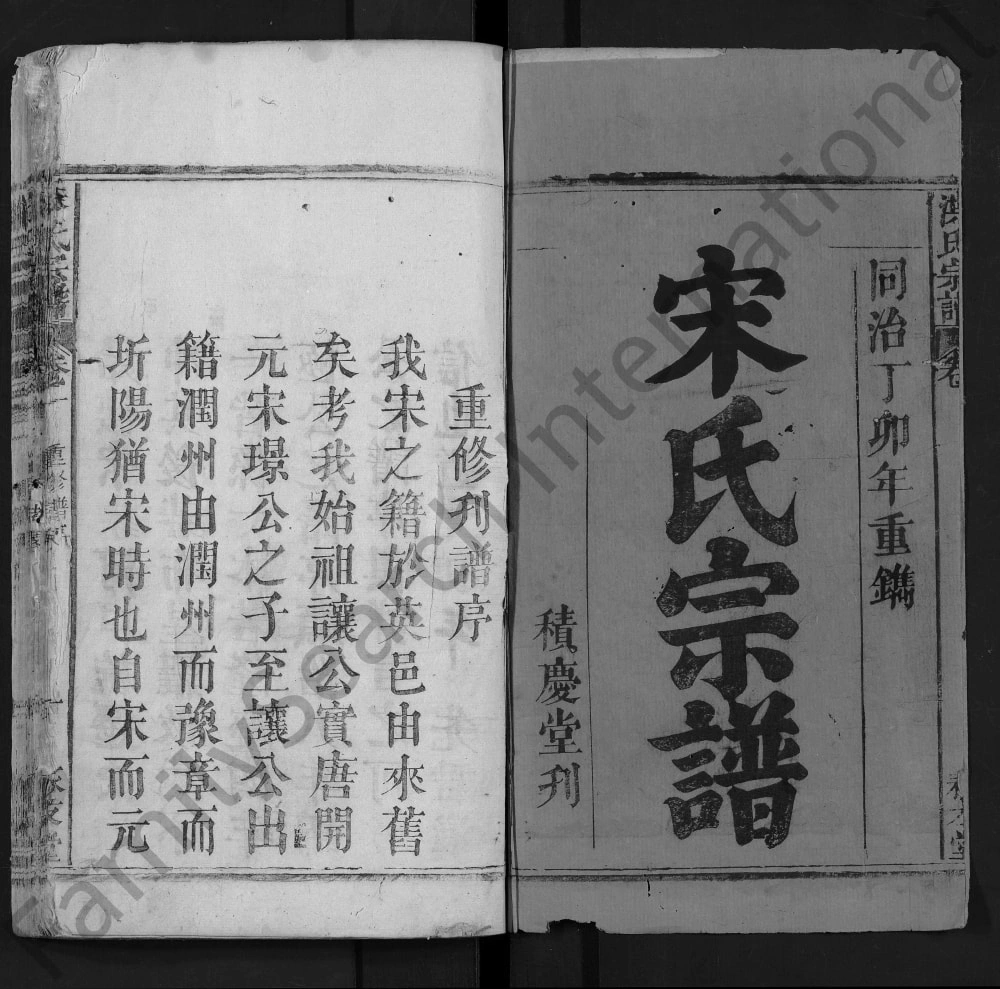 宋氏宗譜
同治丁卯年重鐫
宋氏宗譜
積慶堂刊
重修刊譜序
我宋之籍於英邑由來舊
矣考我始祖讓公實唐開
元宋璟公之子至讓公出
籍潤州由潤州而豫章而
圻陽猶宋時也自宋而元
宋氏宗譜
重修譜序
一
FamilySearch International